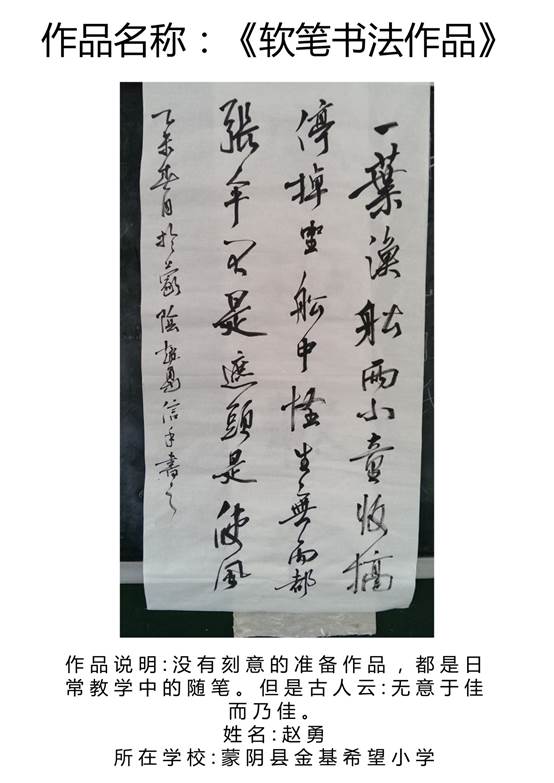 作品名称：《软笔书法作品》
一葉漁船兩小童收搞
停掉坐舩中怪生無雨都
張伞不是遮頭是使風
乙未春日於蒙陰趙勇信手書之
作品说明:没有刻意的准备作品，都是日
常教学中的随笔。但是古人云:无意于佳
而乃佳。
姓名:赵勇
所在学校:蒙阴县金基希望小学